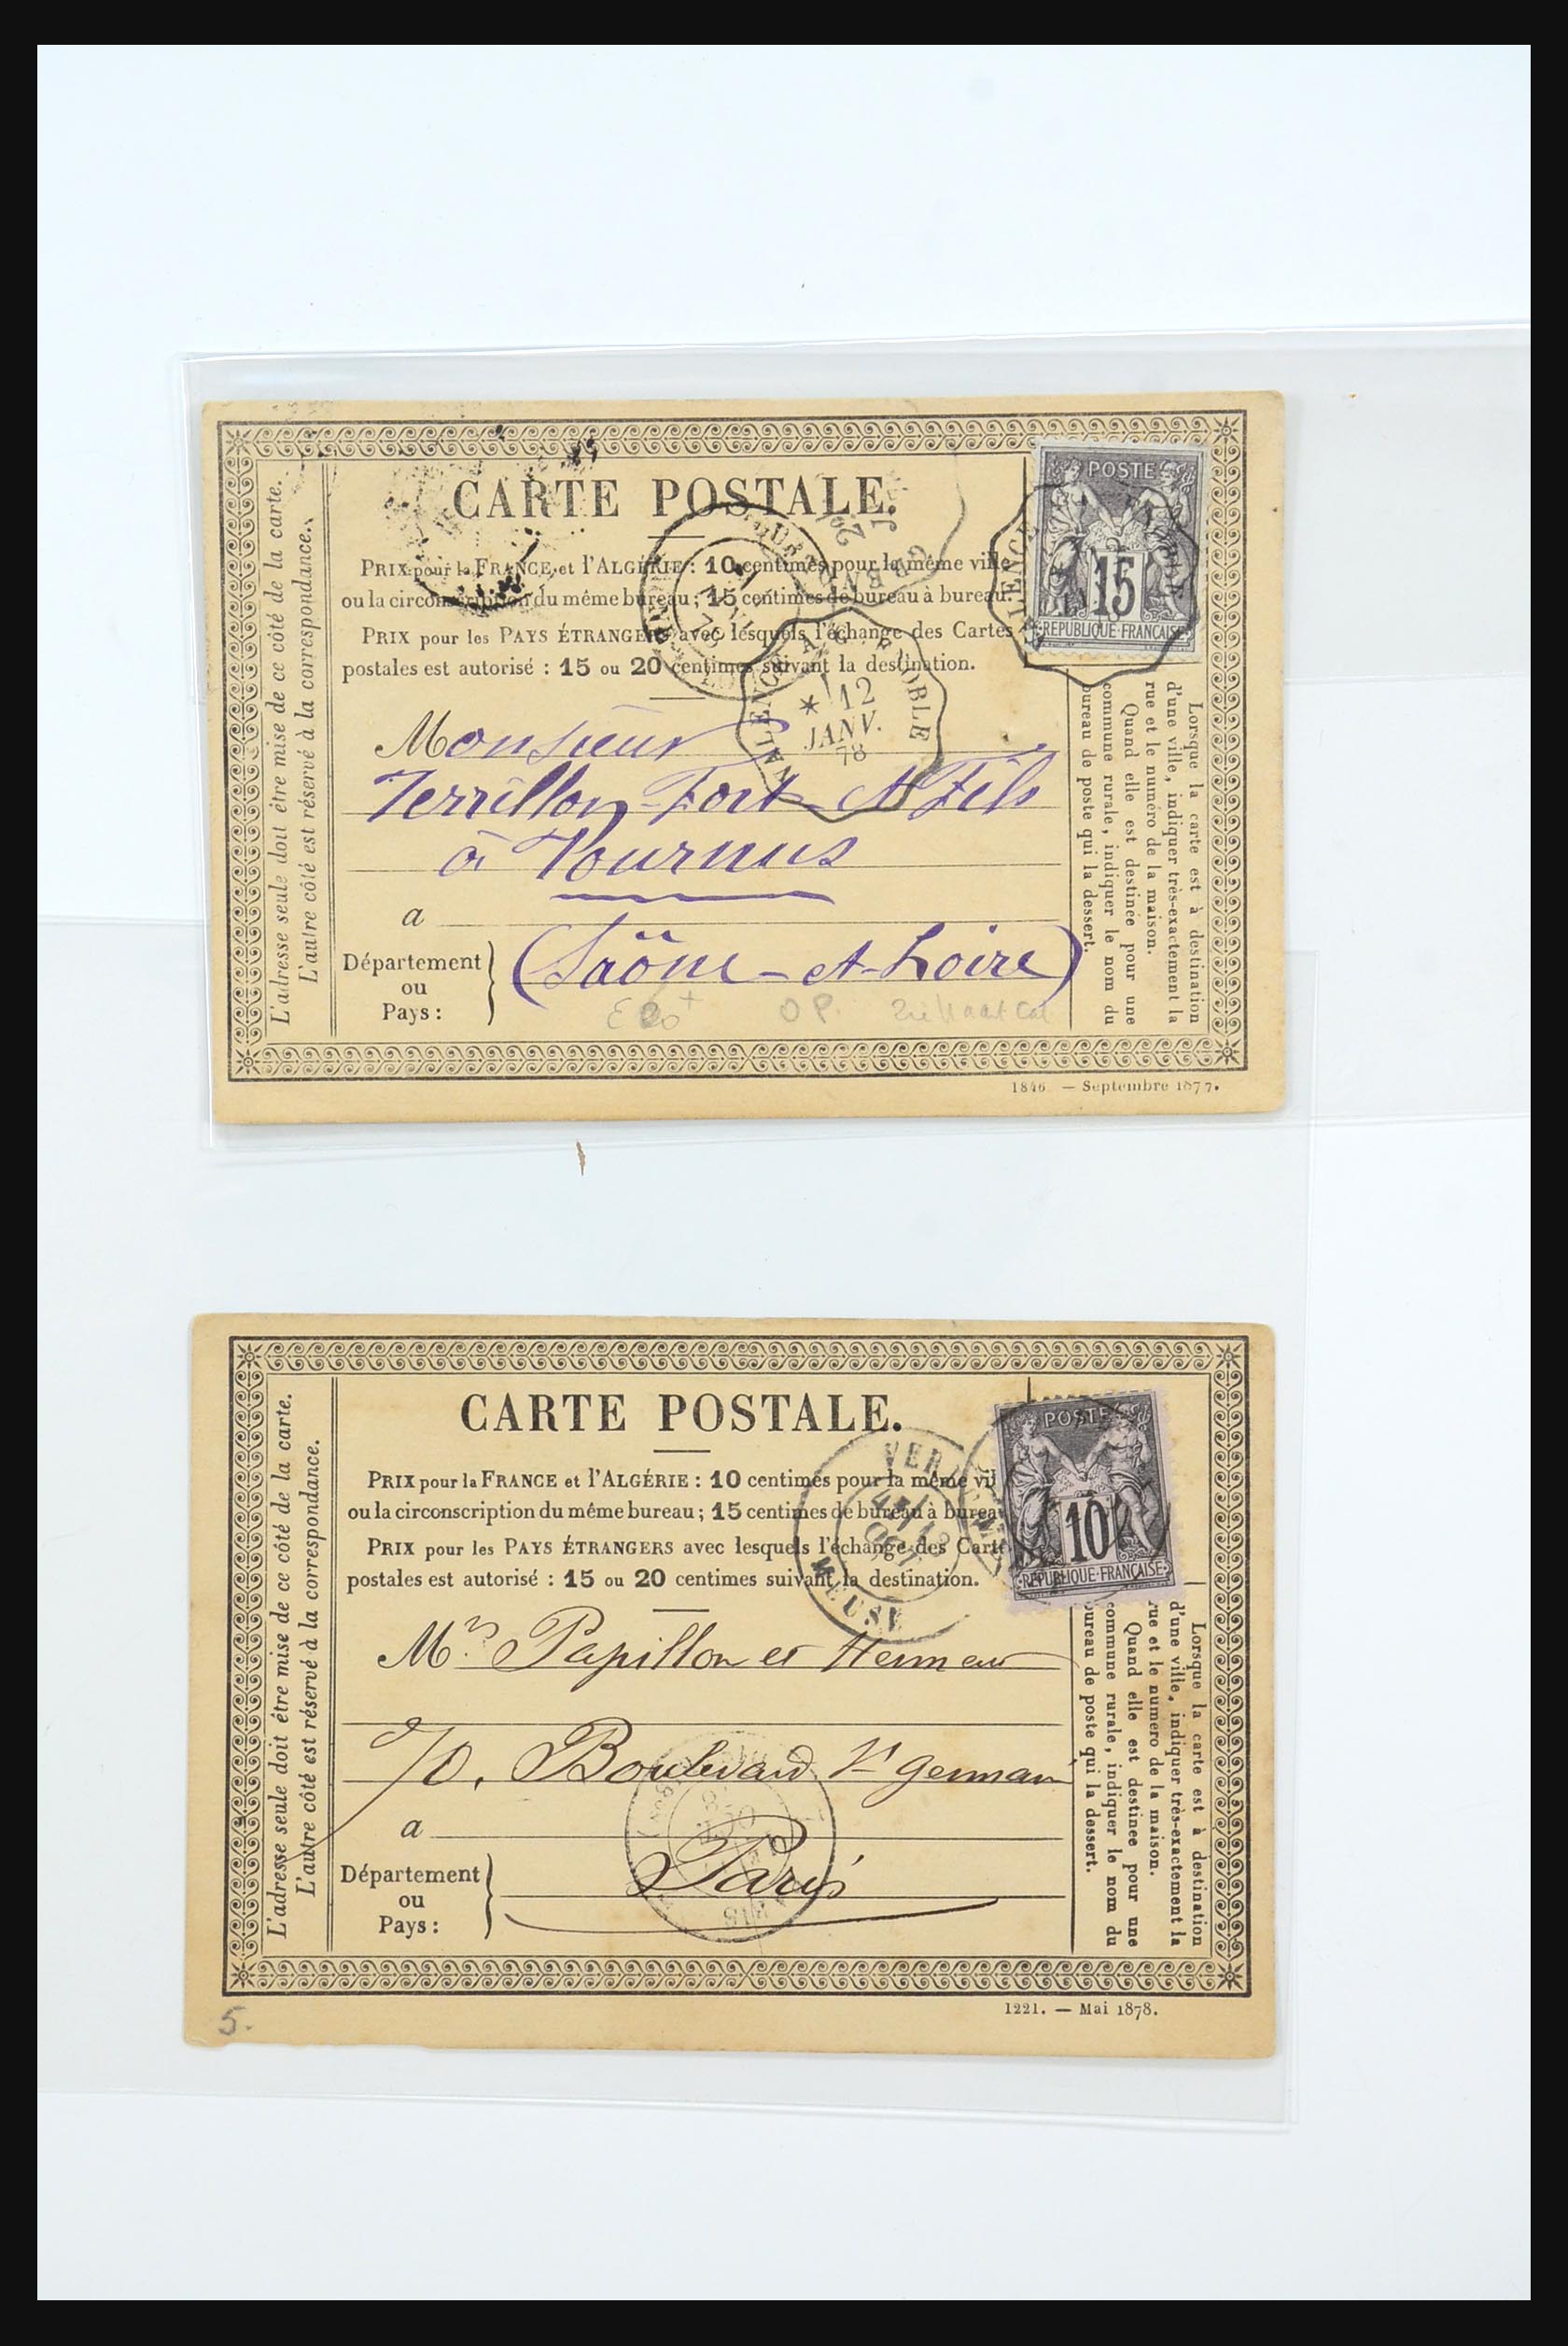 CARTE POSTALE.
PRIX pour la FRANCE et l'ALGÉRIE : 10 centimes pour la même ville
ou la circonscription du même bureau ; 15 centimes de bureau à bureau.
PRIX pour les PAYS ÉTRANGERS avec lesquels l'échange des Cartes
postales est autorisé : 15 ou 20 centimes suivant la destination.
L'adresse seule doit être mise de ce côté de la carte.
L'autre côté est réservé à la correspondance.
POSTE
15
REPUBLIQUE FRANCAISE
VALENCE
12
JANV.
78
Monsieur
Terrillon-Fort et Fils
à Tournus
a
Département
ou
Pays :
(Saône-et-Loire)
Lorsque la carte est à destination
d'une ville, indiquer très-exactement la
rue et le numéro de la maison.
Quand elle est destinée pour une
commune rurale, indiquer le nom du
bureau de poste qui la dessert.
1846 — Septembre 1877.
CARTE POSTALE.
PRIX pour la FRANCE et l'ALGÉRIE : 10 centimes pour la même vil
ou la circonscription du même bureau ; 15 centimes de bureau à burea
PRIX pour les PAYS ÉTRANGERS avec lesquels l'échange des Carte
postales est autorisé : 15 ou 20 centimes suivant la destination.
L'adresse seule doit être mise de ce côté de la carte.
L'autre côté est réservé à la correspondance.
POSTE
10
REPUBLIQUE FRANCAISE
Mrs Papillon et
70, Boulevard St germain
a
Paris
Département
ou
Pays :
Lorsque la carte est à destination
d'une ville, indiquer très-exactement la
rue et le numero de la maison.
Quand elle est destinée pour une
commune rurale, indiquer le nom du
bureau de poste qui la dessert.
1221. — Mai 1878.
5.